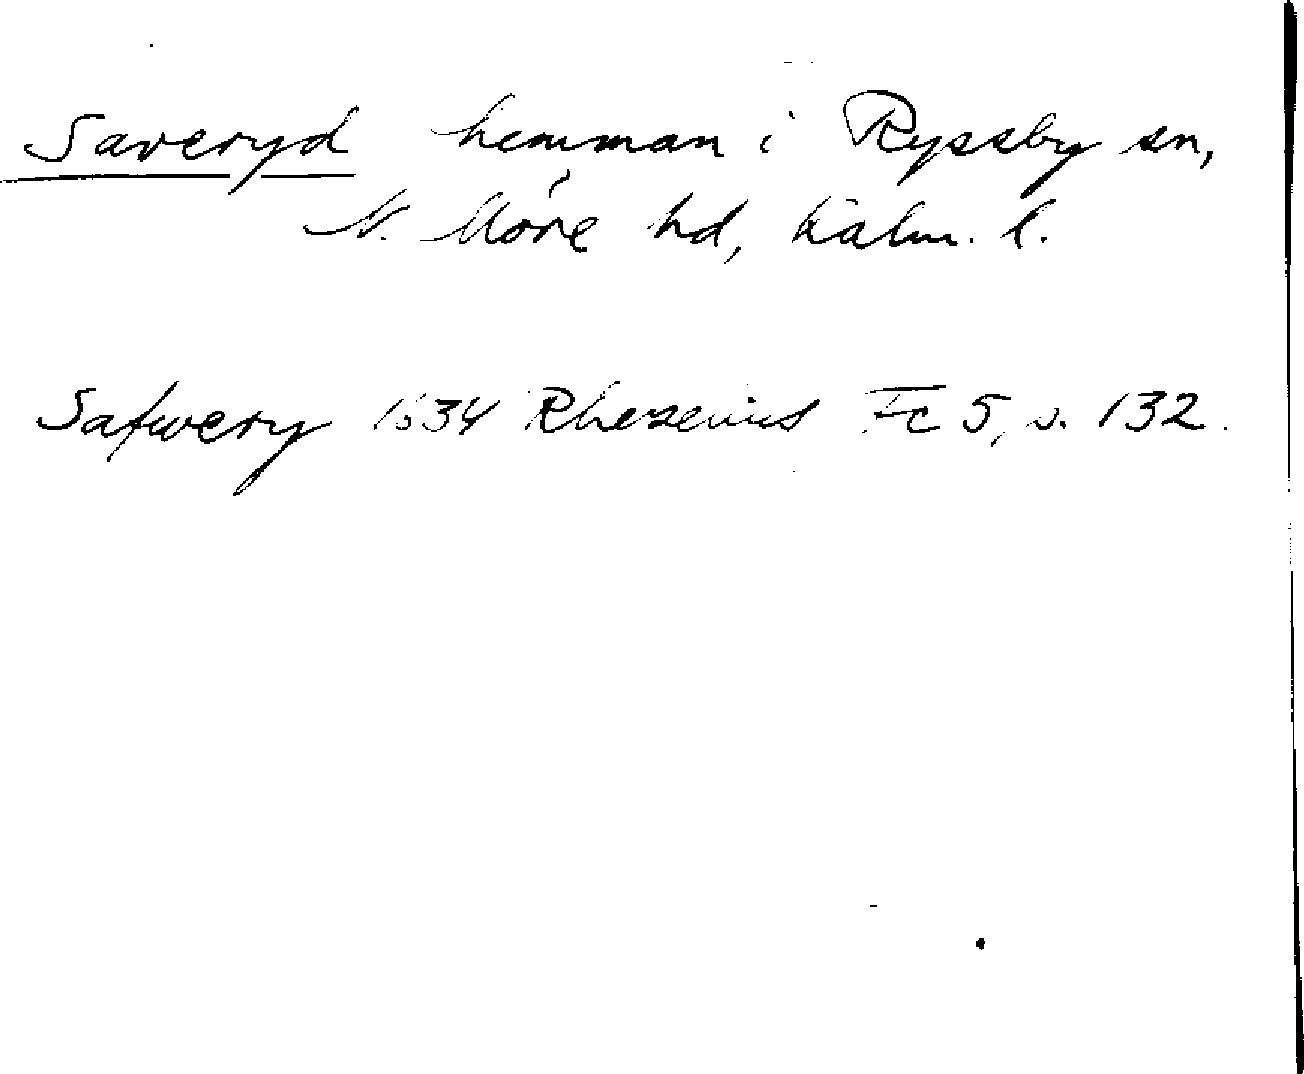 Saveryd hemman i Ryssby sn,
N. Möre hd, Kalm. l.
Safwery 1634 Rhezelius Fc 5, s. 132.